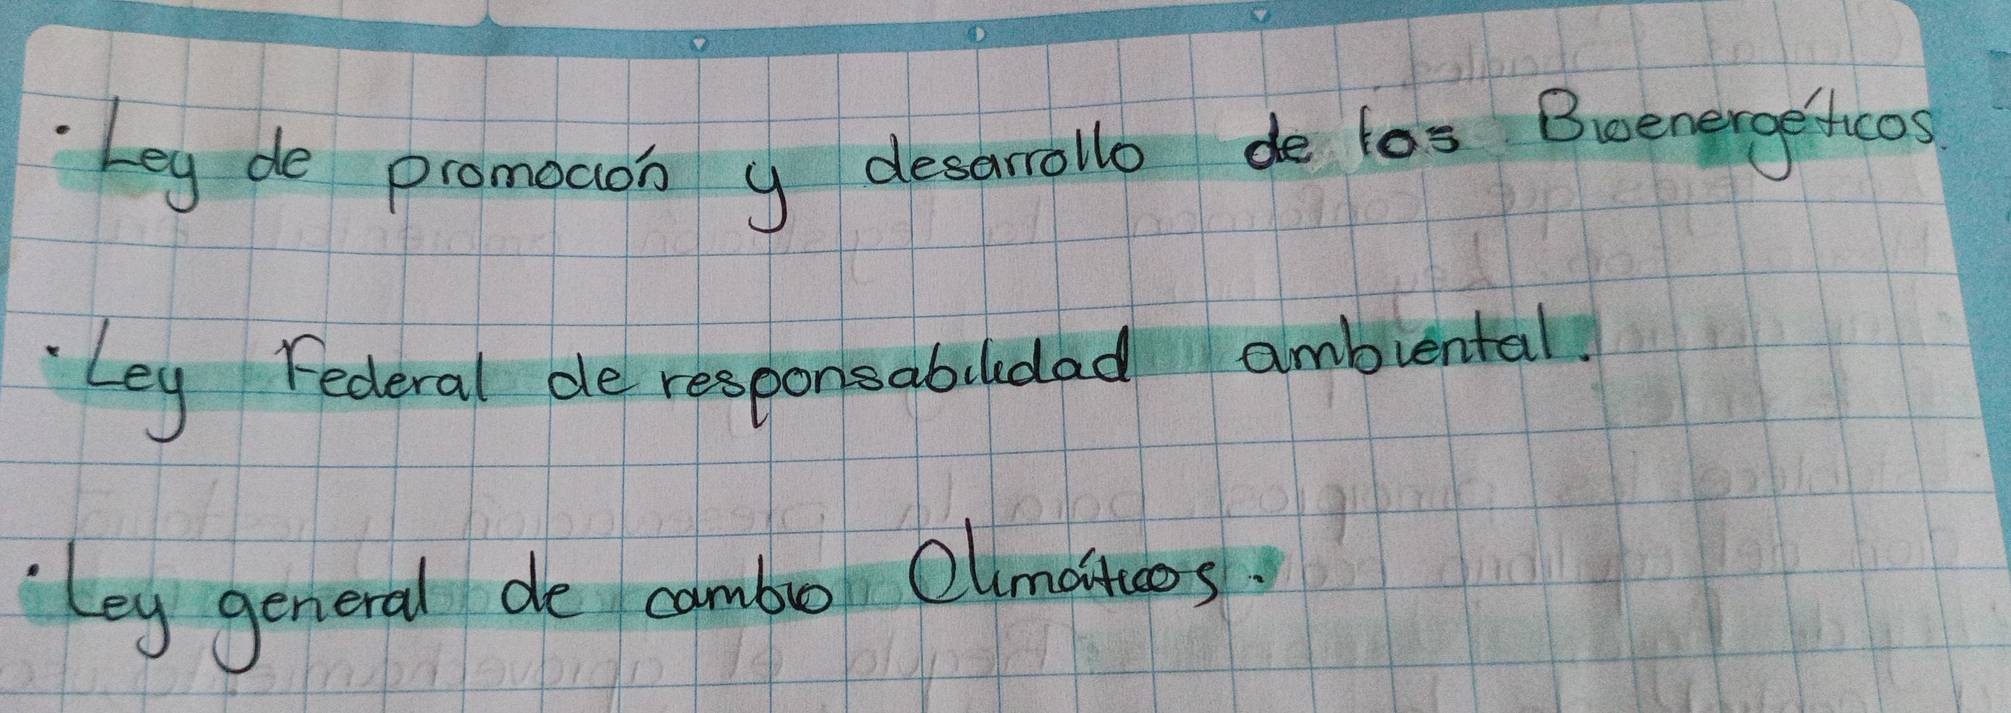 · Ley de promoción y desarrollo de los Bioenergéticos.
· Ley Federal de responsabilidad ambiental.
· Ley general de cambio Climáticos.